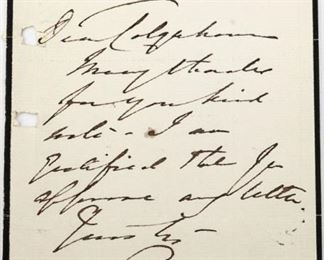 Dear Colquhoun
Many thanks
for your kind
note - I am
gratified that you
approve my letter.
Yours